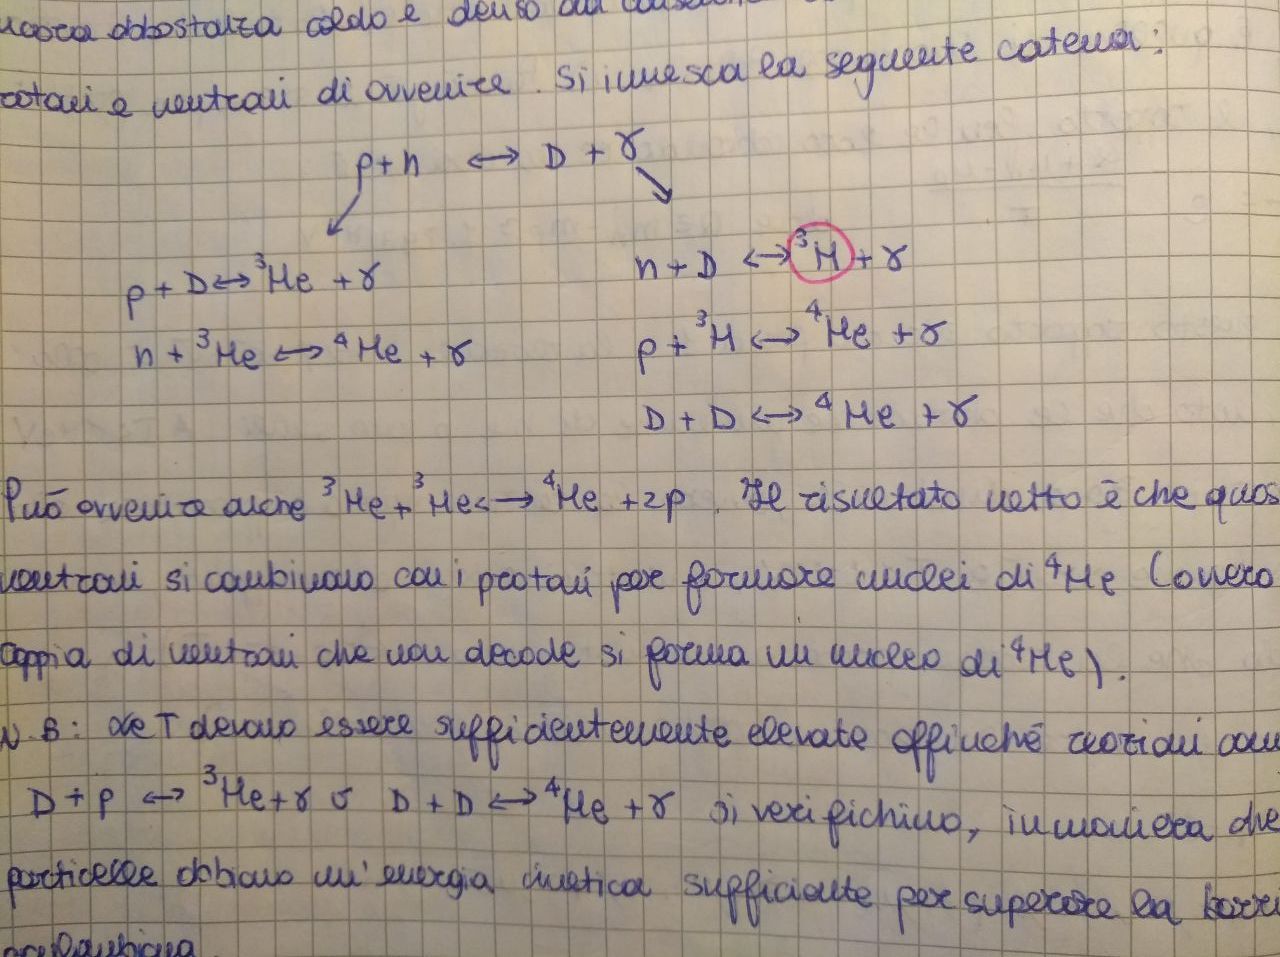 abbastanza caldo e denso da
e neutroni di avvenire. Si innesca la seguente catena:
p+n ↔ D + γ
n + D ↔ ³H + γ
p + D ↔ ³He + γ
p + ³H ↔ ⁴He + γ
n + ³He ↔ ⁴He + γ
D + D ↔ ⁴He + γ
Può avvenire anche ³He + ³He ↔ ⁴He + 2p. Il risultato netto è che quas
neutroni si combinano con i protoni per formare nuclei di ⁴He (ovvero
coppia di neutroni che non decade si forma un nucleo di ⁴He).
N.B: Le T devono essere sufficientemente elevate affinché reazioni com
D + p ↔ ³He + γ o D + D ↔ ⁴He + γ si verifichino, in maniera che
particelle abbiano un'energia cinetica sufficiente per superare la barri
coulombiana.